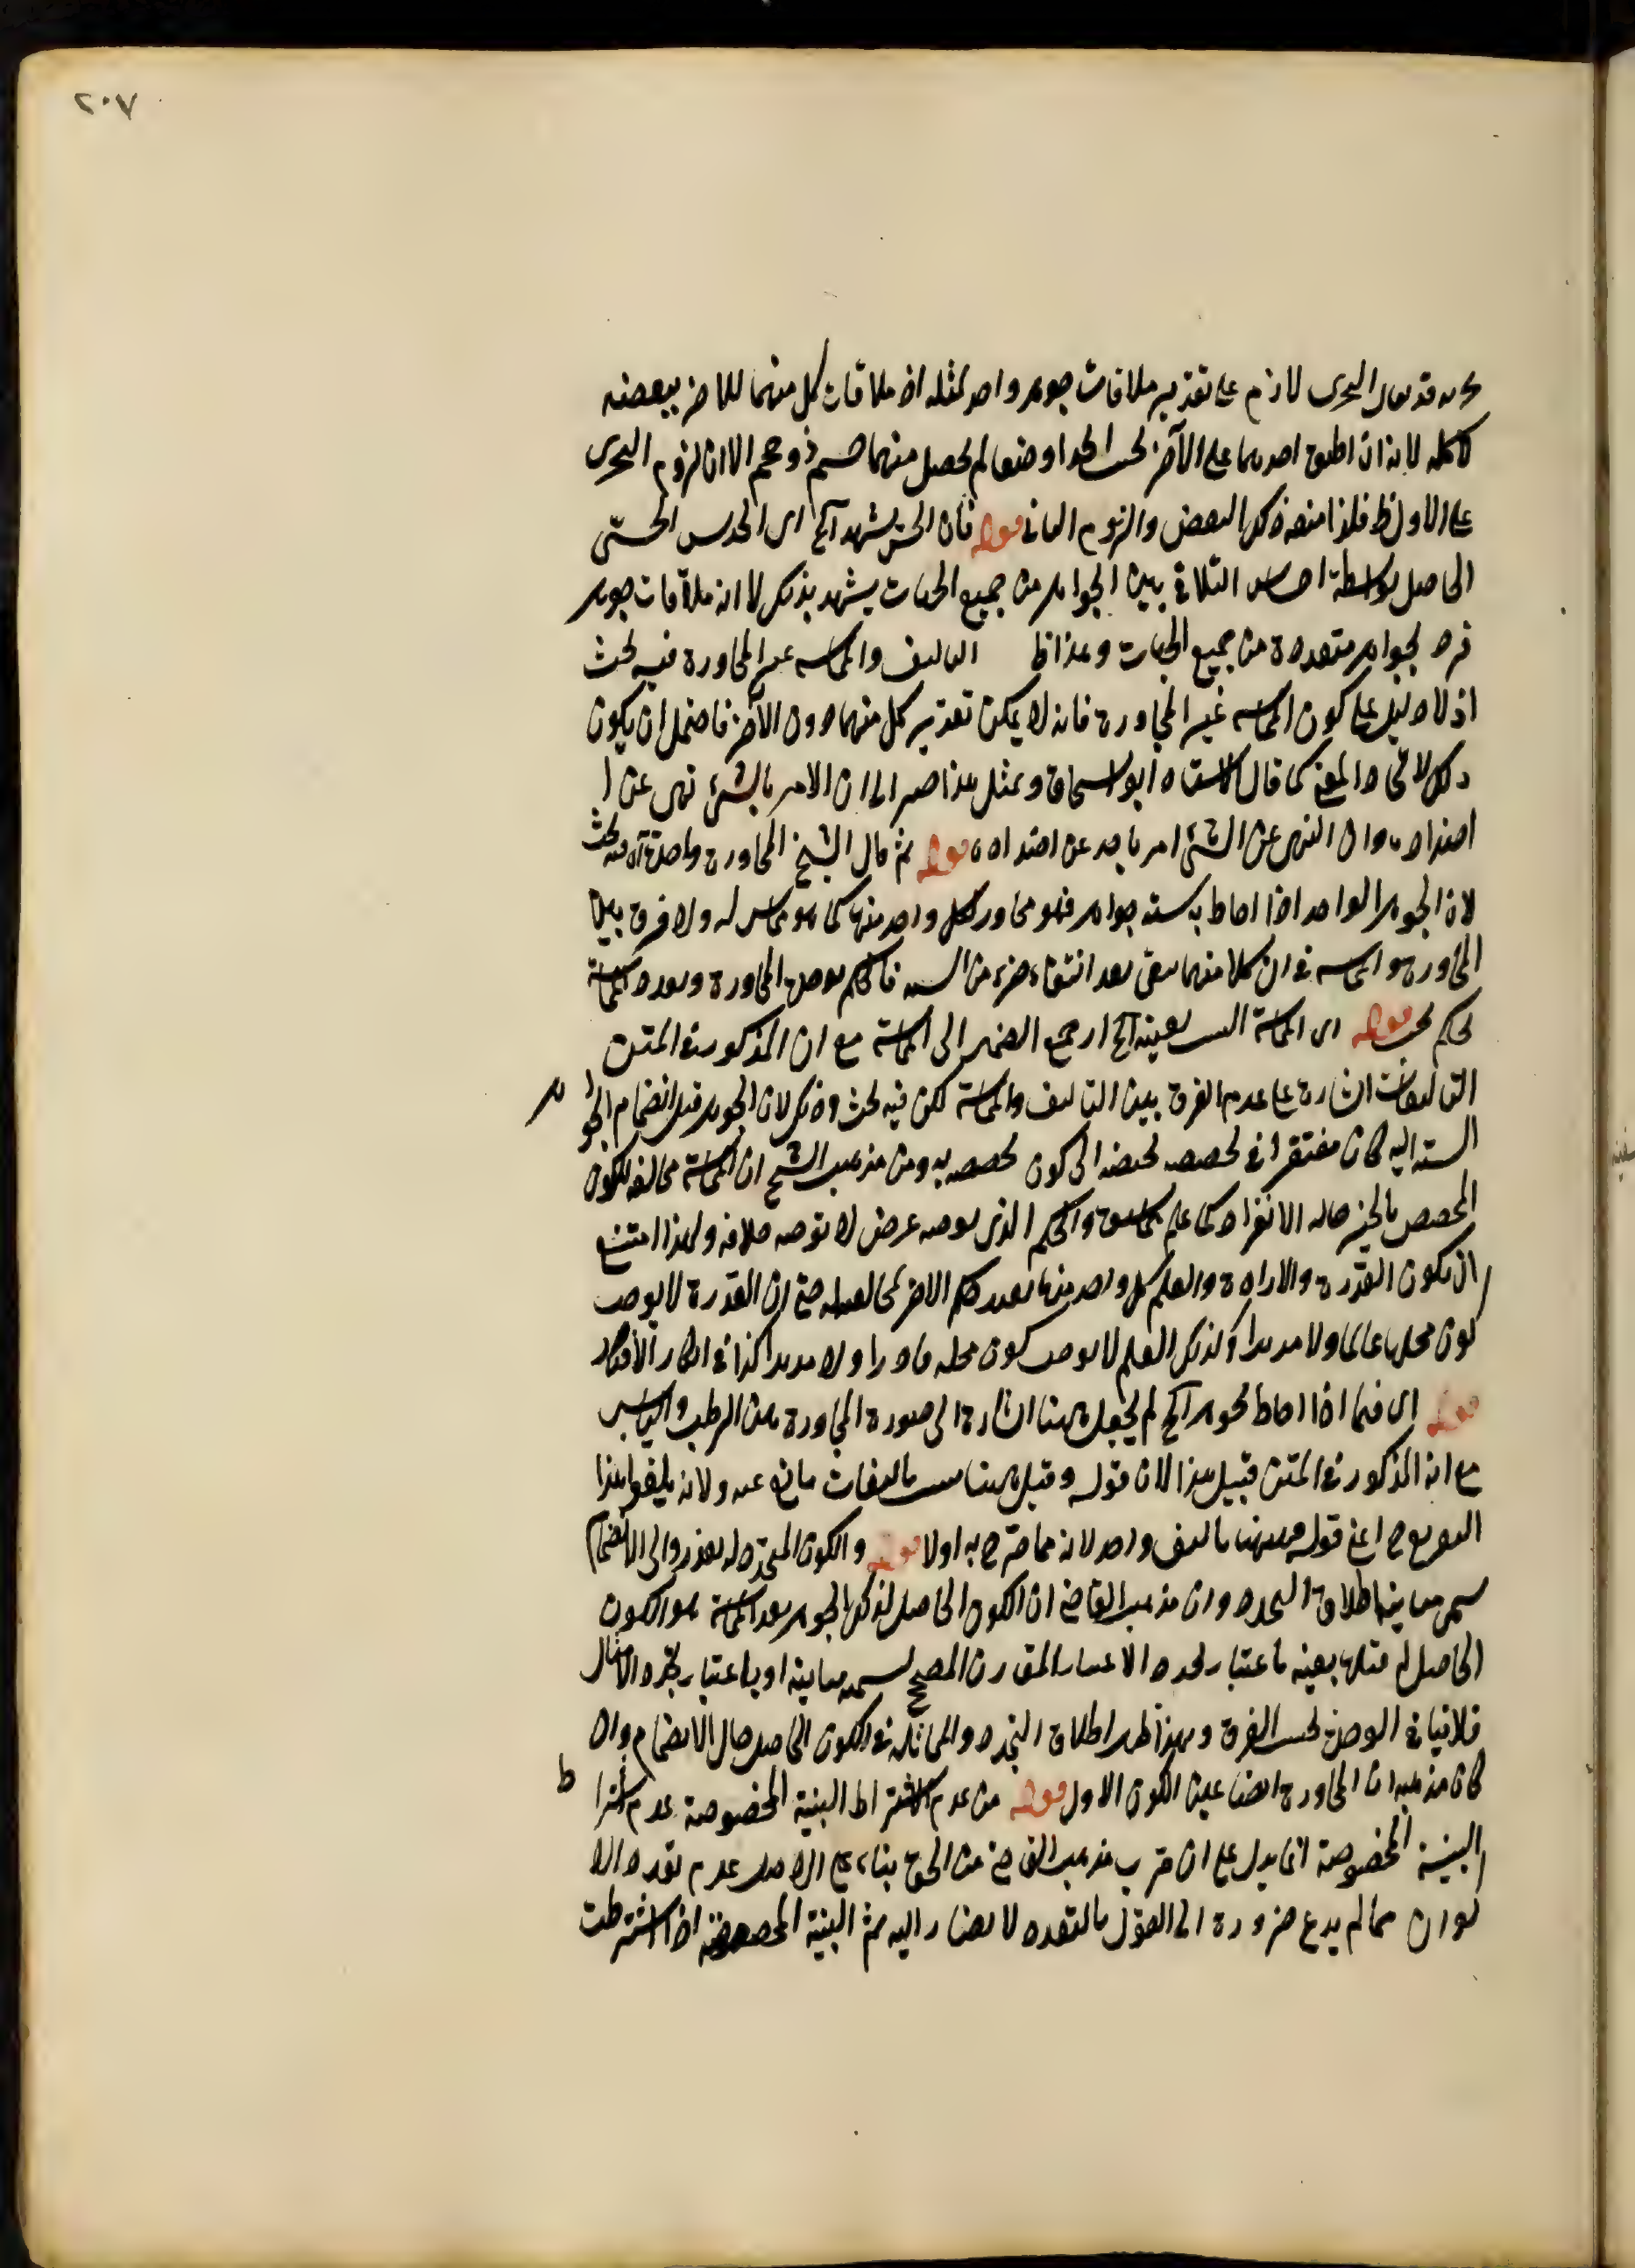 ٢٠٧
قد يقال التجزى لازم على تقدير ملاقات جوهر واحد لمثله اذ ملاقات كل منهما للاخر ببعضه
لا كله لانه ان اطبق احدهما على الآخر بحيث اتحدا وضعا لم يحصل منهما جسم ذو حجم الا ان لزوم التجزى
على الاول ظ فلذا منعه ذلك البعض والزوم الثانى قوله فان الحس يشهد آلخ اى الحدس الحسّى
الحاصل بواسطة احساس التلاقى بين الجواهر من جميع الجهات يشهد بذلك لا انه ملاقات جوهر
فرد لجواهر متعددة من جميع الجهات وهذا ظ التاليف والمماسه غير المجاورة فيه بحث
اذ لا دليل على كون المماسه غير المجاورة فانه لا يمكن تقدير كل منهما دون الآخر فاحتمل ان يكون
ذلك لاتحاد المعنى كما قال الاستاد ابو اسحاق وبمثل هذا صير الى ان الامر بالشئ نهى عن
اضداده وان النهى عن الشئ امر باحد عن اضداده قوله ثم قال الشيخ المجاورة واحدة آه فيه بحث
لان الجوهر الواحد اذا احاط به ستة جواهر فهو مجاور لكل واحد منها كما هو مماس له ولا فرق بين
المجاورة والمماسه فى ان كلا منهما يبقى بعد انتفاء جزء من الستة فالحكم بوحدة المجاورة وتعدد المماسة
تحكم بحت قوله اى المماسة الست بعينها آلخ ارجع الضمير الى المماسة مع ان المذكور فى المتن
التاليفات اشارة على عدم الفرق بين التاليف والمماسة لكن فيه بحث وذلك لان الجوهر قبل انضمام الجواهر
الستة اليه كان مفتقرا فى تخصصه بحيزه الى كون يخصصه به ومن مذهب الشيخ ان المماسة مخالفة للكون
المخصص بالحيز حالة الانفراد كما علم مما سبق والحكم الذى يوجبه عرض لا يوجبه خلافه ولهذا امتنع
ان يكون القدرة والارادة والعلم كل واحد منها يفيد حكم الاخر لمخالفته حتى ان القدرة لا يوجب
كون محلها عالما ولا مريدا وكذلك العلم لا يوجب كون محله قادرا ولا مريدا كذا فى ابكار الافكار
قوله اى فيما اذا احاط بجوهر آلخ لم يجعل ههنا اشارة الى صورة المجاورة بين الرطب واليابس
مع انه المذكور فى المتن قبيل هذا لان قوله وقيل ههنا ست تاليفات مانع عنه ولانه يلغو هذا
التفريع ح اعنى قوله فههنا تاليف واحد لانه مما صرح به اولا قوله والكون المتجدد له بعد زوال الانضمام
سمى مباينة اطلاق التجدد وان مذهب القاضى ان الكون الحاصل لذلك الجوهر بعد المماسة هو الكون
الحاصل له قبلها بعينه باعتبار تجدد الاعتبار المقارن المصحح لتسميته مباينة او باعتبار تجدد الامثال
فلا ينافى الوحدة بحسب الفرق وبهذا ظهر اطلاق التجدد والمماثلة فى الكون الحاصل حال الانضمام وان
كان مذهبه ان المجاورة ايضا عين الكون الاول قوله من عدم الاشتراط البنية المخصوصة عدم اشتراط
البنية المخصوصة انما يدل على ان قرب مذهب القاضى من الحق بناء على ان الاصل عدم تعدد الا
كوان مما لم يدع ضرورة الى القول بالتعدد لا يصار اليه ثم البنية المخصوصة اذا اشترطت